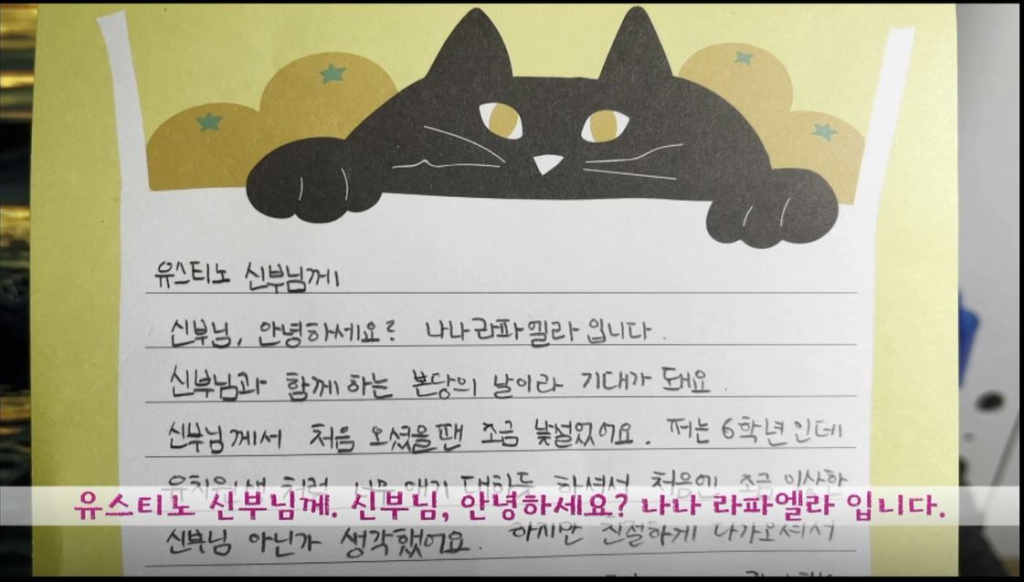 유스티노 신부님께
신부님, 안녕하세요? 나나라파엘라 입니다.
신부님과 함께하는 본당의 날이라 기대가 돼요.
신부님께서 처음 오셨을땐 조금 낯설었어요. 저는 6학년인데
유치원생 처럼 너무 애기 대하듯 하셔서 처음엔 조금 이상한
유스티노 신부님께. 신부님, 안녕하세요? 나나 라파엘라 입니다.
신부님 아닌가 생각했어요. 하지만 친절하게 다가오셔서